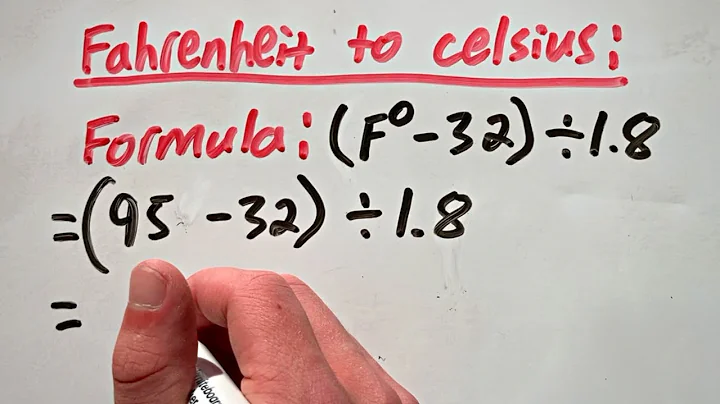 Fahrenheit to celsius:
Formula: (F° - 32) ÷ 1.8
= (95 - 32) ÷ 1.8
=